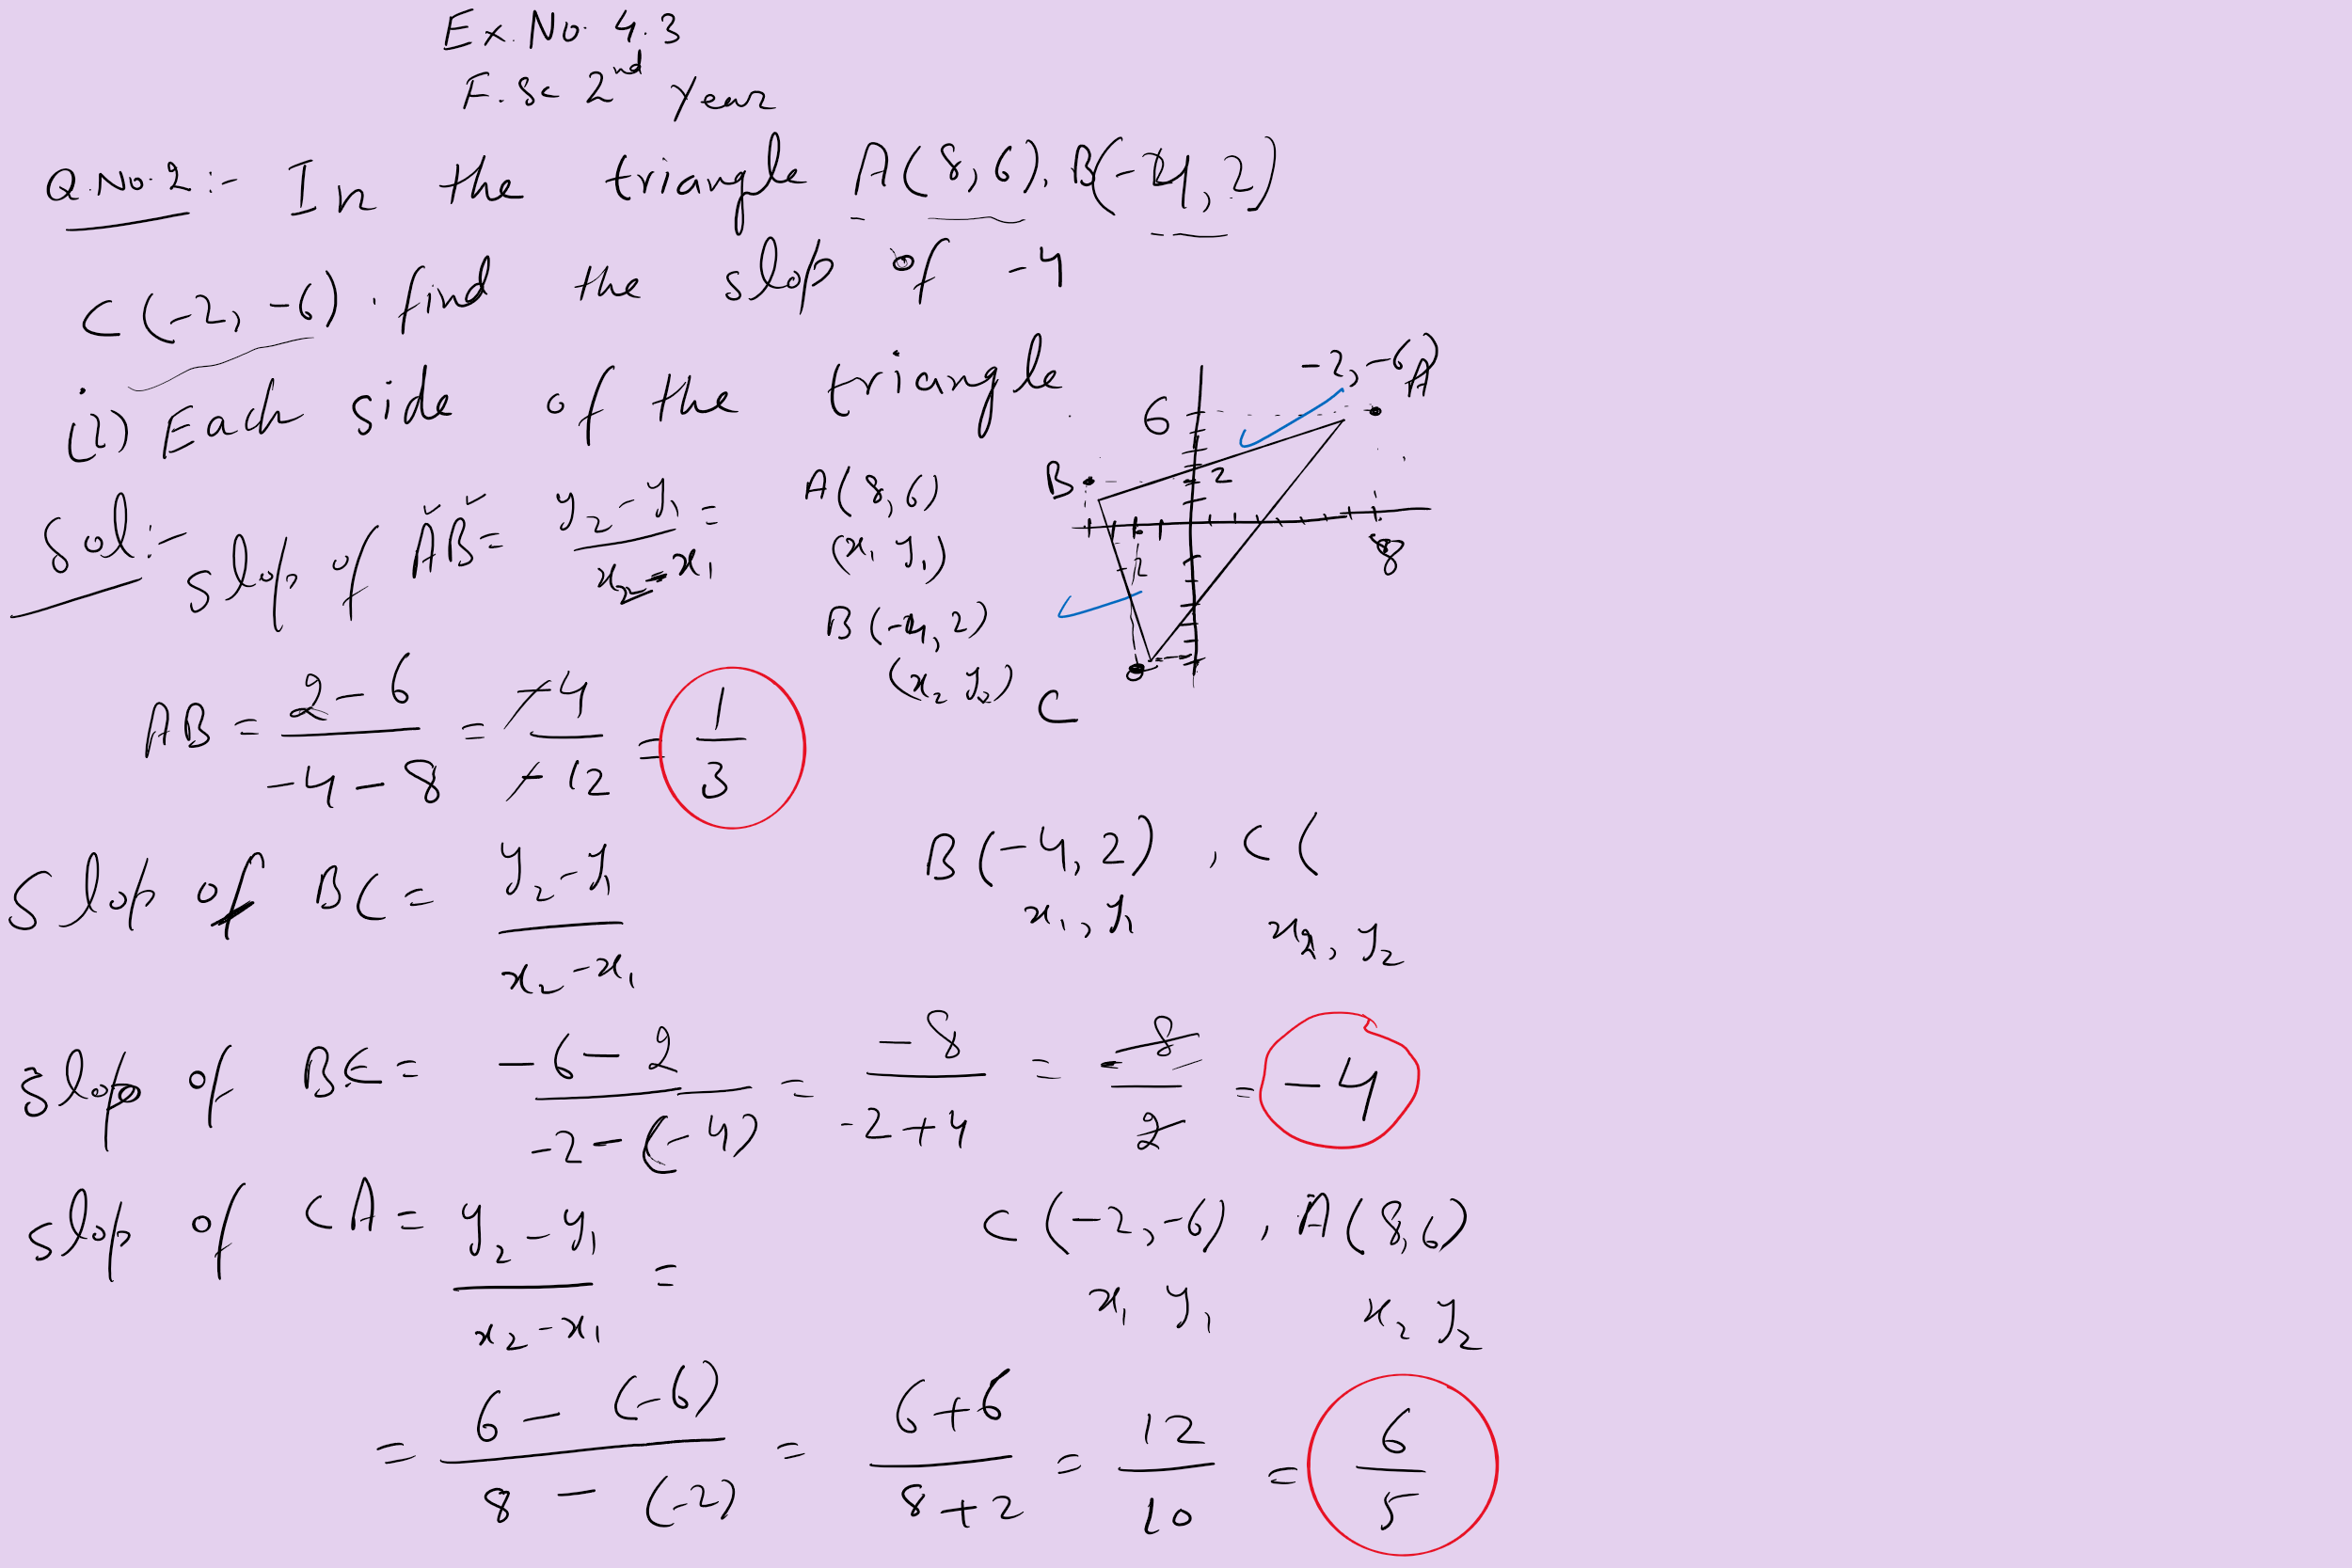 Ex. No. 4.3
F.Sc 2nd Year
Q.No.2:- In the triangle A(8,6), B(-4,2)
C(-2,-6). find the slop of -4
(i) Each side of the triangle.
-2,-6)
A
6
B
2
8
-2
C
Sol:- slop of AB = y2-y1 / x2-x1 =
A(8,6)
(x1 y1)
B(-4,2)
(x2 y2)
AB = 2-6 / -4-8 = -4 / -12 = 1/3
Slop of BC = y2-y1 / x2-x1
B(-4,2), C(
x1, y1 x2, y2
slop of BC = -6-2 / -2-(-4) = -8 / -2+4 = -8 / 2 = -4
slop of CA = y2-y1 / x2-x1 =
C(-2,-6), A(8,6)
x1 y1 x2 y2
= 6-(-6) / 8-(-2) = 6+6 / 8+2 = 12 / 10 = 6/5